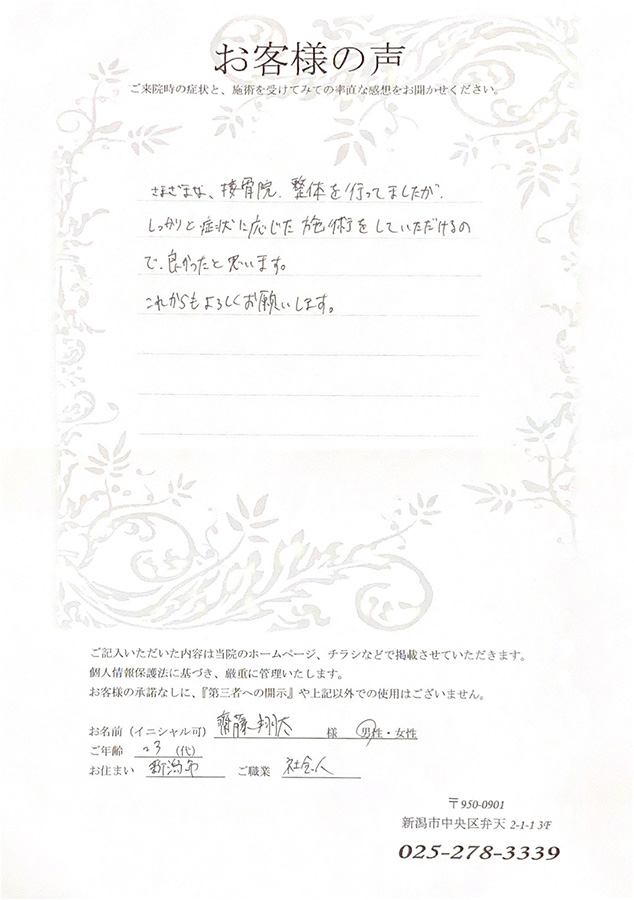 お客様の声
ご来院時の症状と、施術を受けてみての率直な感想をお聞かせください。
さまざまな、接骨院、整体を行ってましたが、
しっかりと症状に応じた施術をしていただけるの
で、良かったと思います。
これからもよろしくお願いします。
ご記入いただいた内容は当院のホームページ、チラシなどで掲載させていただきます。
個人情報保護法に基づき、厳重に管理いたします。
お客様の承諾なしに、『第三者への開示』や上記以外での使用はございません。
お名前（イニシャル可）齋藤翔太 様 男性・女性
ご年齢 23 （代）
お住まい 新潟市 ご職業 社会人
〒950-0901
新潟市中央区弁天 2-1-1 3F
025-278-3339